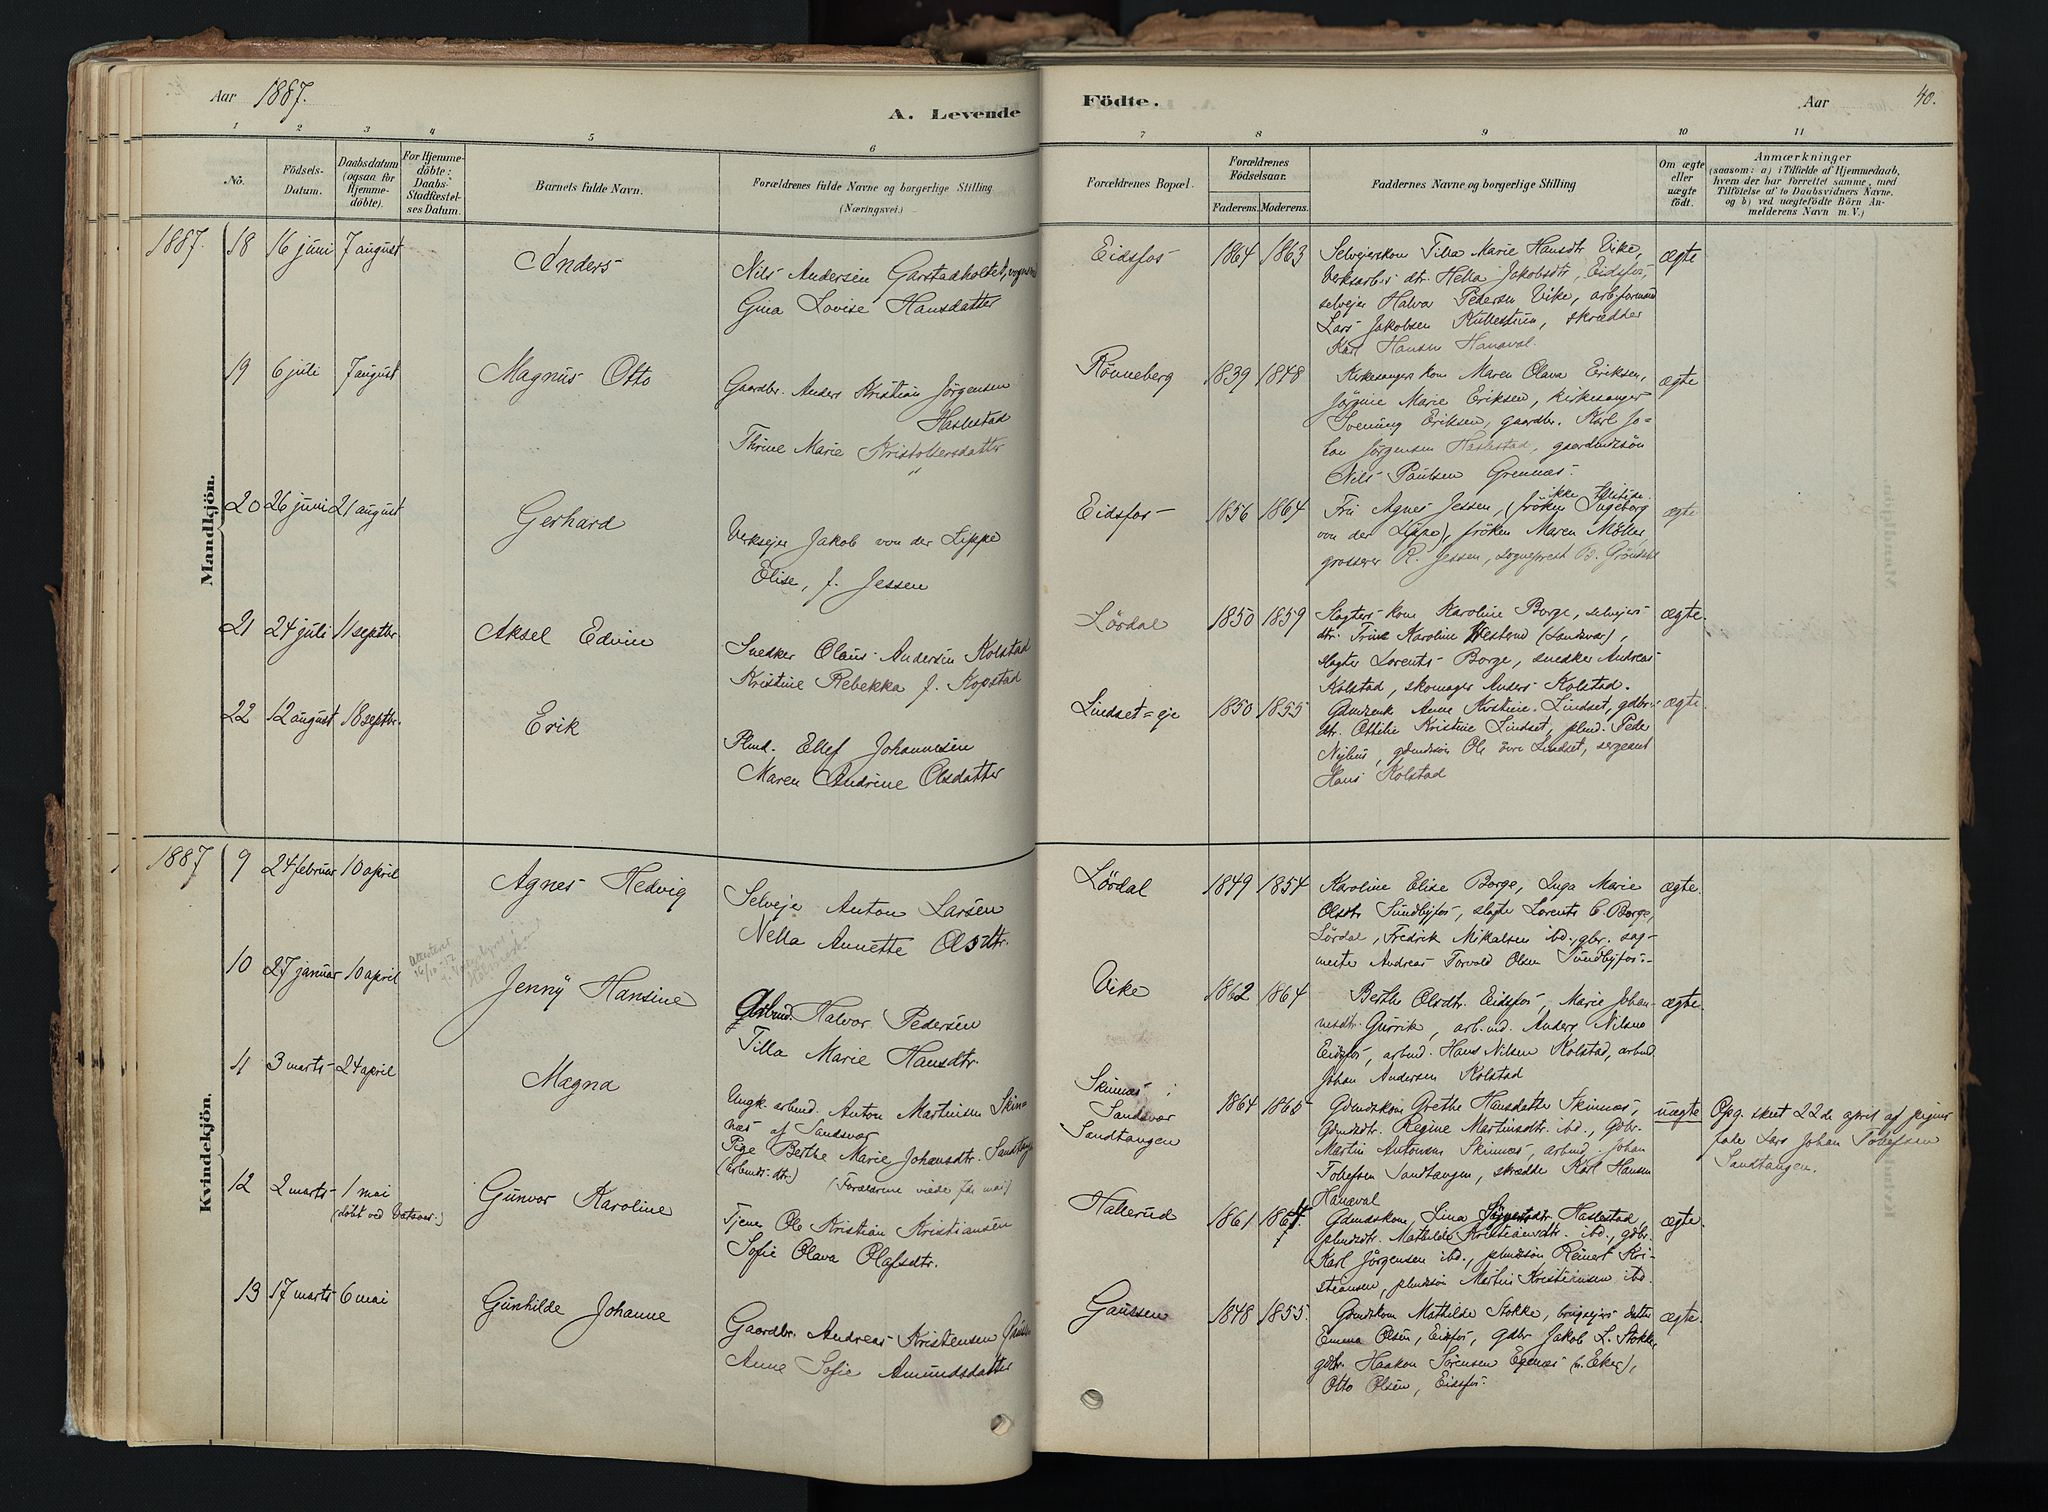 Aar 1887.
A. Levende
Födte.
Aar
40.
1 2 3 4 5 6 7 8 9 10 11
No.
Födsels-Datum.
Daabsdatum (ogsaa for Hjemmedöbte).
For Hjemmedöbte; Daabs-Stadfæstelses Datum.
Barnets fulde Navn.
Forældrenes fulde Navne og borgerlige Stilling.
(Næringsvei.)
Forældrenes Bopæl.
Forældrenes Födselsaar.
Faderens. Moderens.
Faddernes Navne og borgerlige Stilling
Om ægte eller uægte födt.
Anmærkninger
(saasom: a) i Tilfælde af Hjemmedaab,
hvem der har forrettet samme, med
Tilföielse af to Daabsvidners Navne.
og b) ved uægtefödte Börn An-
melderens Navn m.V.)
Mandkjön.
1887. 18 16 juni 7 august Anders
Nils Andersen Garstadholtet,
Gina Lovise Hansdatter
Eidsfos 1864 1863
Selveierskone Tilla Marie Hansdtr Vike,
Verksarb. dtr. Hella Jakobsdtr, Eidsfos,
selvejer Halvor Pedersen Vike, arb.formand
Lars Jakobsen Kullestuen, skrædder
Karl Hansen Hanaval.
ægte
19 6 juli 7 august Magnus Otto
Gaardbr. Anders Kristian Jörgensen
Haslestad
Thrine Marie Kristoffersdatter
"
Rönneberg 1839 1848
Kirkesangers kone Maren Olava Eriksen,
Jörgine Marie Eriksen, kirkesanger
Svenung Eriksen, gaardbr. Karl Jo-
han Jörgensen Haslestad, gaardmdssön
Nils Paulsen Grennes.
ægte
20 26 juni 21 august Gerhard
Verksejer Jakob von der Lippe
Elise, f. Jessen
Eidsfos 1856 1864
ikke tilstede.
Fru Agnes Jessen, (fröken Ingeborg
von der Lippe), fröken Maren Möller,
grosserer R. Jessen, sogneprest B. Gröndahl
ægte
21 24 juli 11 septbr Aksel Edvin
Snedker Olaus Andersen Kolstad
Kristine Rebekka f. Kopstad
Lördal 1850 1859
Slagters kone Karoline Borge, selvejers
dtr. Trine Karoline Vestend (Sandsvær),
slagter Lorents Borge, snedker Andreas
Kolstad, skomager Anders Kolstad.
ægte.
22 12 august 18 septbr. Erik
Plmd. Ellef Johannesen
Maren Andrine Olsdatter
Lindset=eje 1850 1855
Gdmdenk Anne Kirstine Lindset, gdbr.
dtr. Ottilie Kristine Lindset, plmd. Peder
gdmdssön Ole övre Lindset, sergeant
Hans Kolstad
ægte.
Kvindekjön.
1887 9 24 februar 10 april Agnes Hedvig
Selvejer Anton Larsen
Nella Annette Olsdtr.
Lördal 1849 1854
Karoline Elise Borge, Inga Marie
Olsdtr Sundbyfos, slagter Lorents C. Borge,
Lördal, Fredrik Mikalsen ibd., gbr. sag-
mester Andreas Torvald Olsen Sundbyfos.
ægte.
10 27 januar 10 april Jenny Hansine
Halvor Pedersen
Tilla Marie Hansdtr.
Vike 1862 1864
Berthe Olsdtr. Eidsfos, Marie Johan-
nesdtr. Gurrik, arb.md. Anders Nilsen
Eidsfos, arbmd. Hans Nilsen Kolstad, arbmd.
Johan Andersen Kolstad
ægte.
11 3 marts 24 april Magna
Ungk. arbmd. Anton Martinsen Skin-
næs af Sandsvær
Pige Berthe Marie Johansdtr. Sandtangen
(arbmds.dtr.) (Forældrene viede mai)
Skinnæs i
Sandsvær
Sandtangen
1864 1865
Gdmdskone Grethe Hansdatter Skinnæs,
Gdmdsdtr. Regine Martinsdtr. ibd., Gdbr.
Martin Antonsen Skinnæs, arbmd. Johan
Tollefsen Sandtangen, skrædder Karl Hansen
Hanaval
uægte
Opg. skeet 22de april af pigens
fader Lars Johan Tollefsen
Sandtangen.
12 2 marts 1 mai
(döbt ved Vatsvær.)
Gunvor Karoline
Tjener Ole Kristian Kristiansen
Sofie Olava Olafsdtr.
Hallerud 1861 1864.
Gdmdskone Lina Haslestad
plmdsdtr. Mathilde Kristiansdtr. ibd., gdbr.
Karl Jörgensen ibd., plmdssön Reinert Kri-
stiansen, plmdssön Martin Kristiansen ibd.
ægte
13 17 marts 6 mai Gunhilde Johanne
Gaardbr. Andreas Kristensen
Anne Sofie Amundsdatter
Gaussen 1848 1855.
Gdmdskone Mathilde Stokke, datter
Emma Olsen, Eidsfos, gdbr Jakob L. Stokke,
gdbr. Haakon Sörensen Egenæs (ö. Eker),
Otto Olsen, Eidsfos.
ægte.